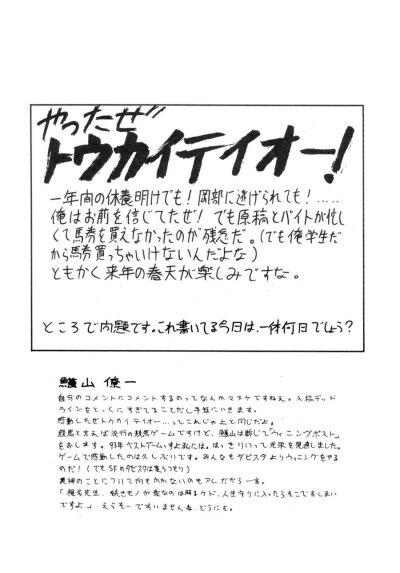 やったぜ
トウカイテイオー！
一年内の休養明けでも！岡部に逃げられても！……
俺はお前を信じてたぜ！でも原稿とバイトが忙し
くて馬券を買えなかったのが残念だ。（でも俺学生だ
から馬券買っちゃいけないんだよな）
ともかく来年の春天が楽しみですな。
ところで問題です。これ書いてる今日は、一体何日でしょう？
山僚一
自分のコメントにコメントするのってなんかマヌケですねえ。入稿デッド
ラインをとっくにすぎてることだし手短にいきます。
感動したぜトウカイテイオー…ってこれじゃ上と同じだよ。
競馬と言えば流行の競馬ゲームですけど、山は断じて「ウィニングポスト」
をおします。93年ベストゲームっすよ私には。はっきりいって元栄を見過しました。
ゲームで感動したのは久しぶりです。みんなもダビスタよりウィニングをやる
のだ！（でもSFのダビスタは買うつもり）
美神のことについて何もかかないのもアレだから一言。
「椎名先生、続きモノが変なのは解るケド、人生守りに入ったらそこでおしまい
ですよ」えらそーですいませんね、どうにも。